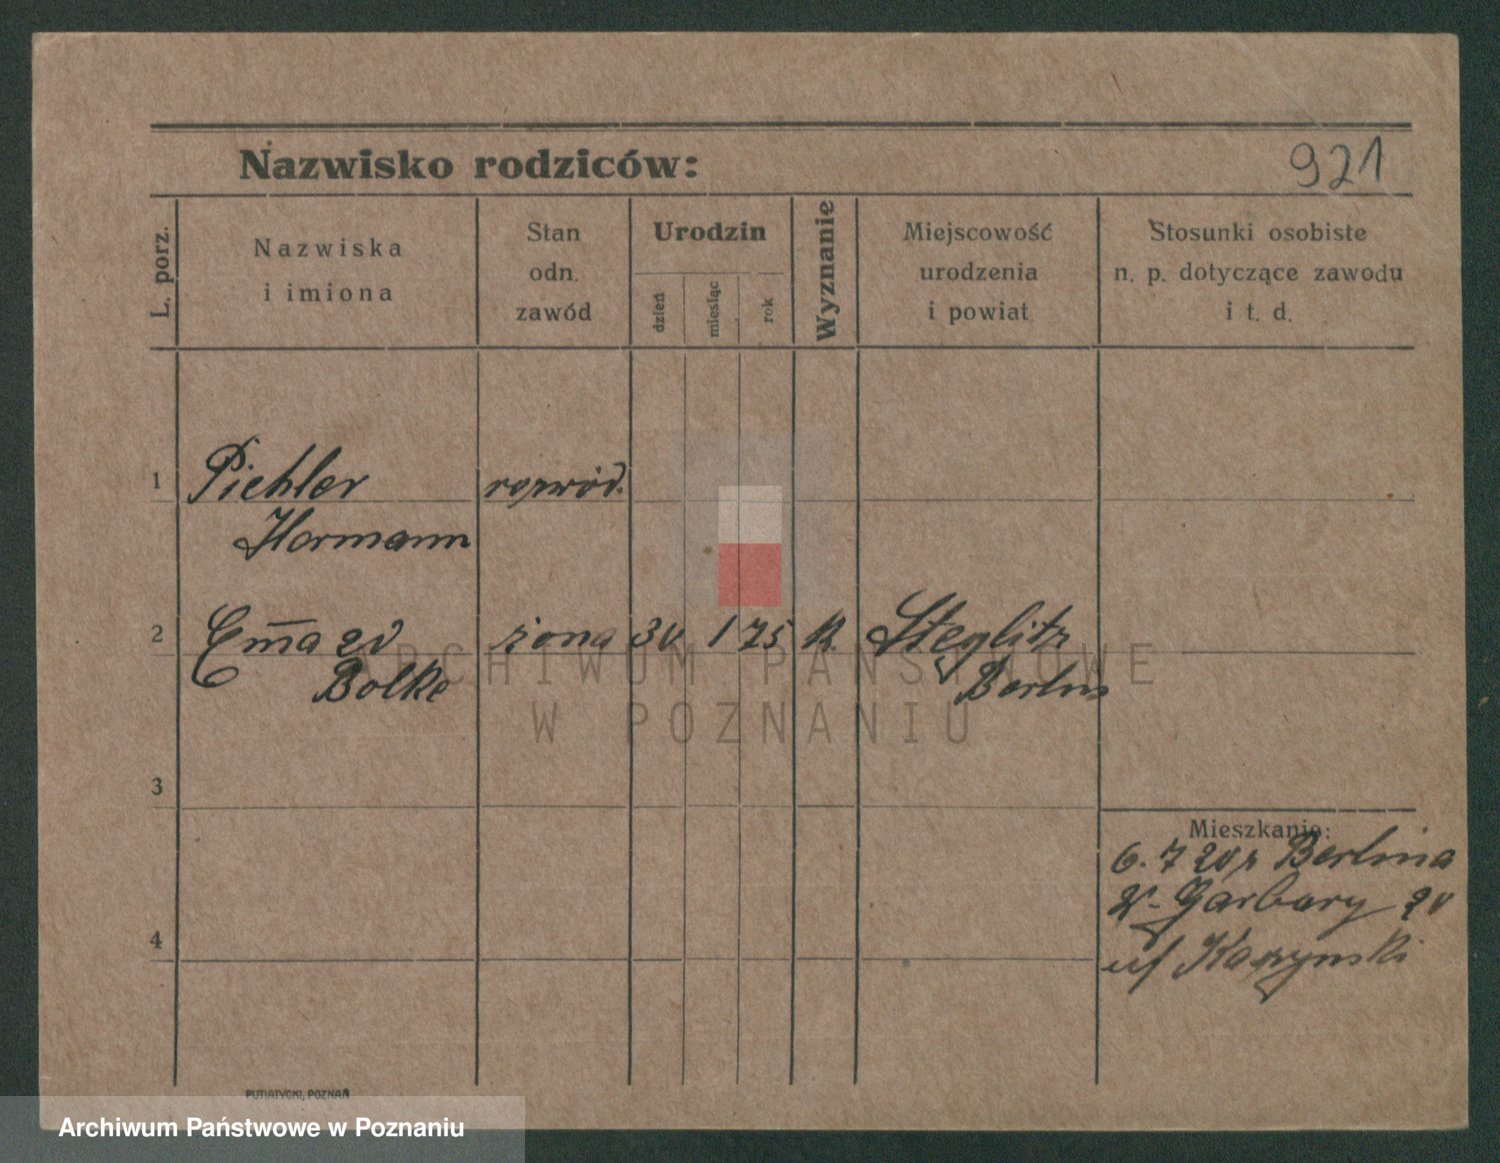 Nazwisko rodziców:
921
L. porz.
Nazwiska
i imiona
Stan
odn.
zawód
Urodzin
dzień
miesiąc
rok
Wyznanie
Miejscowość
urodzenia
i powiat
Stosunki osobiste
n. p. dotyczące zawodu
i t. d.
1
Piehler
Hermann
rozwód.
2
Em̄a zd
Bolke
żona
30
1
75
Steglitz
Berlin
ARCHIWUM PAŃSTWOWE
W POZNANIU
3
Mieszkanie:
6. 7 20 z Berlina
W. Garbary
4
uf
PUTIATYCKI, POZNAŃ
Archiwum Państwowe w Poznaniu